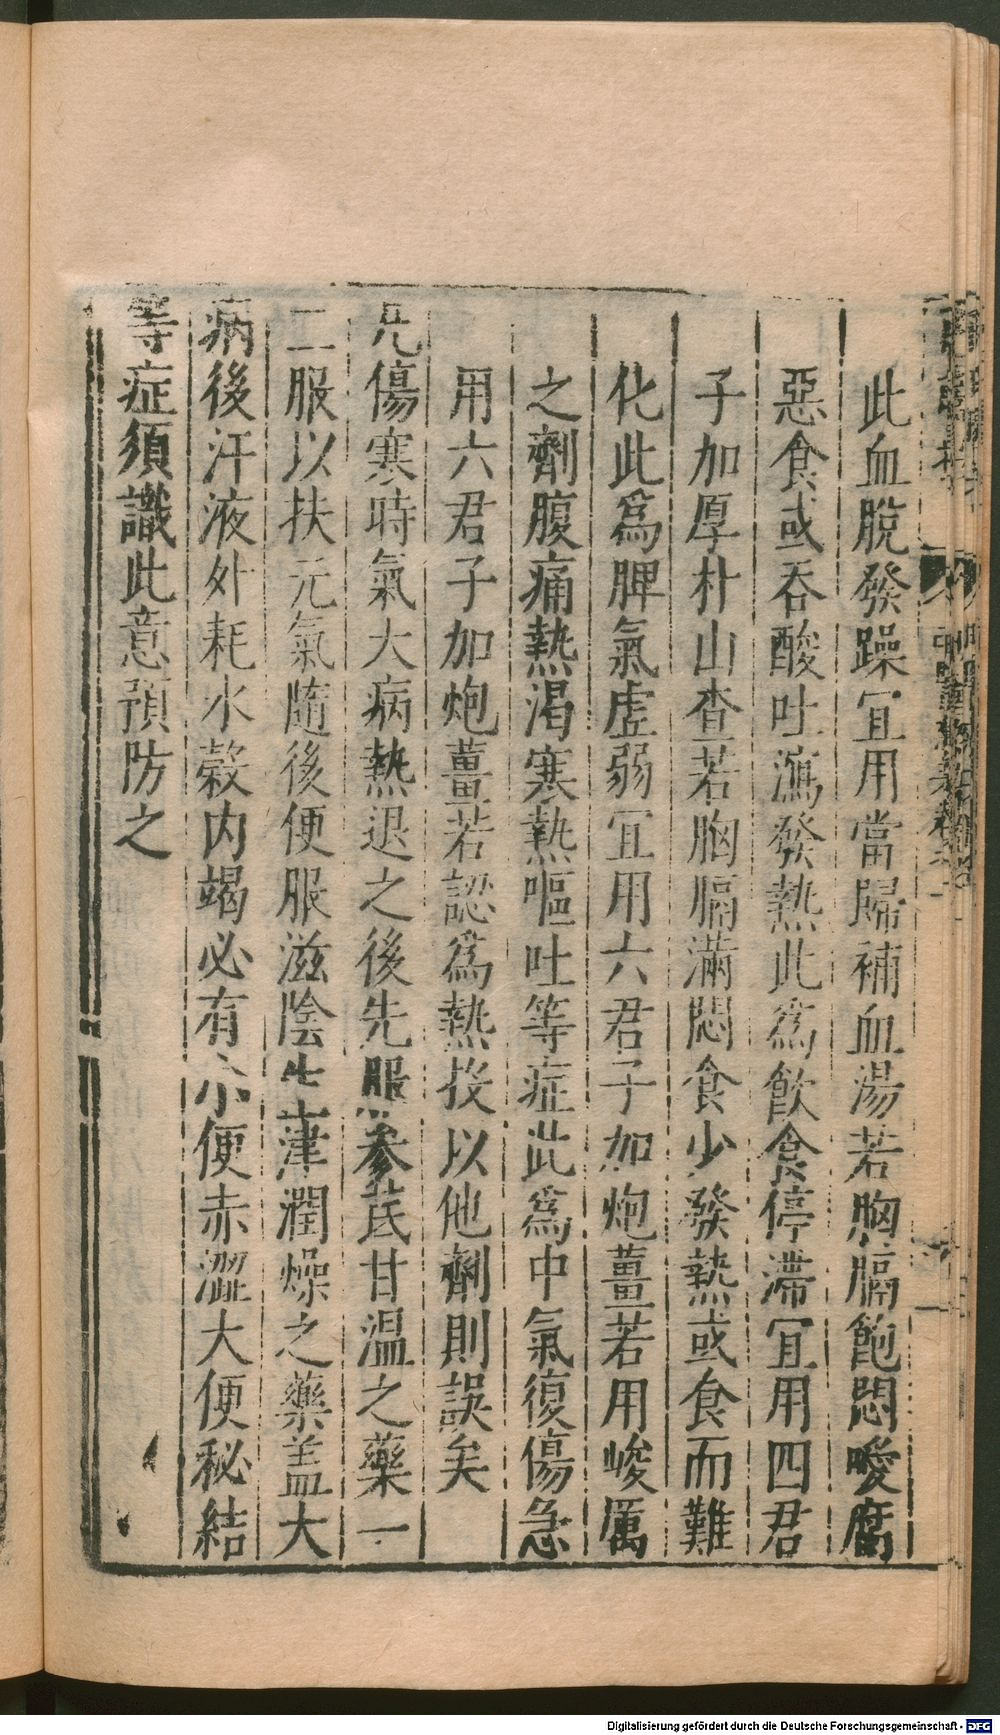 此血脫發躁宜用當歸補血湯若胸膈飽悶噯腐
惡食或吞酸吐瀉發熱此爲飲食停滯宜用四君
子加厚朴山查若胸膈滿悶食少發熱或食而難
化此爲脾氣虚弱宜用六君子加炮薑若用峻厲
之劑腹痛熱渴寒熱嘔吐等症此爲中氣復傷急
用六君子加炮薑若認爲熱投以他劑則誤矣
凡傷寒時氣大病熱退之後先服參芪甘温之藥一
二服以扶元氣隨後便服滋陰生津潤燥之藥盖大
病後汗液外耗水穀内竭必有小便赤澀大便秘結
等症須識此意預防之
Digitalisierung gefördert durch die Deutsche Forschungsgemeinschaft - DFG